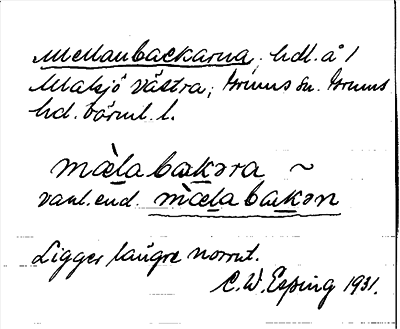 Mellanbackarna, hdl. å 1
Malsjö västra, Grums sn. Grums
hd. värml. l.
mæ̀labakəra ~
vanl. end. mæ̀labakən
Ligger längre norrut.
C. W. Esping 1931.